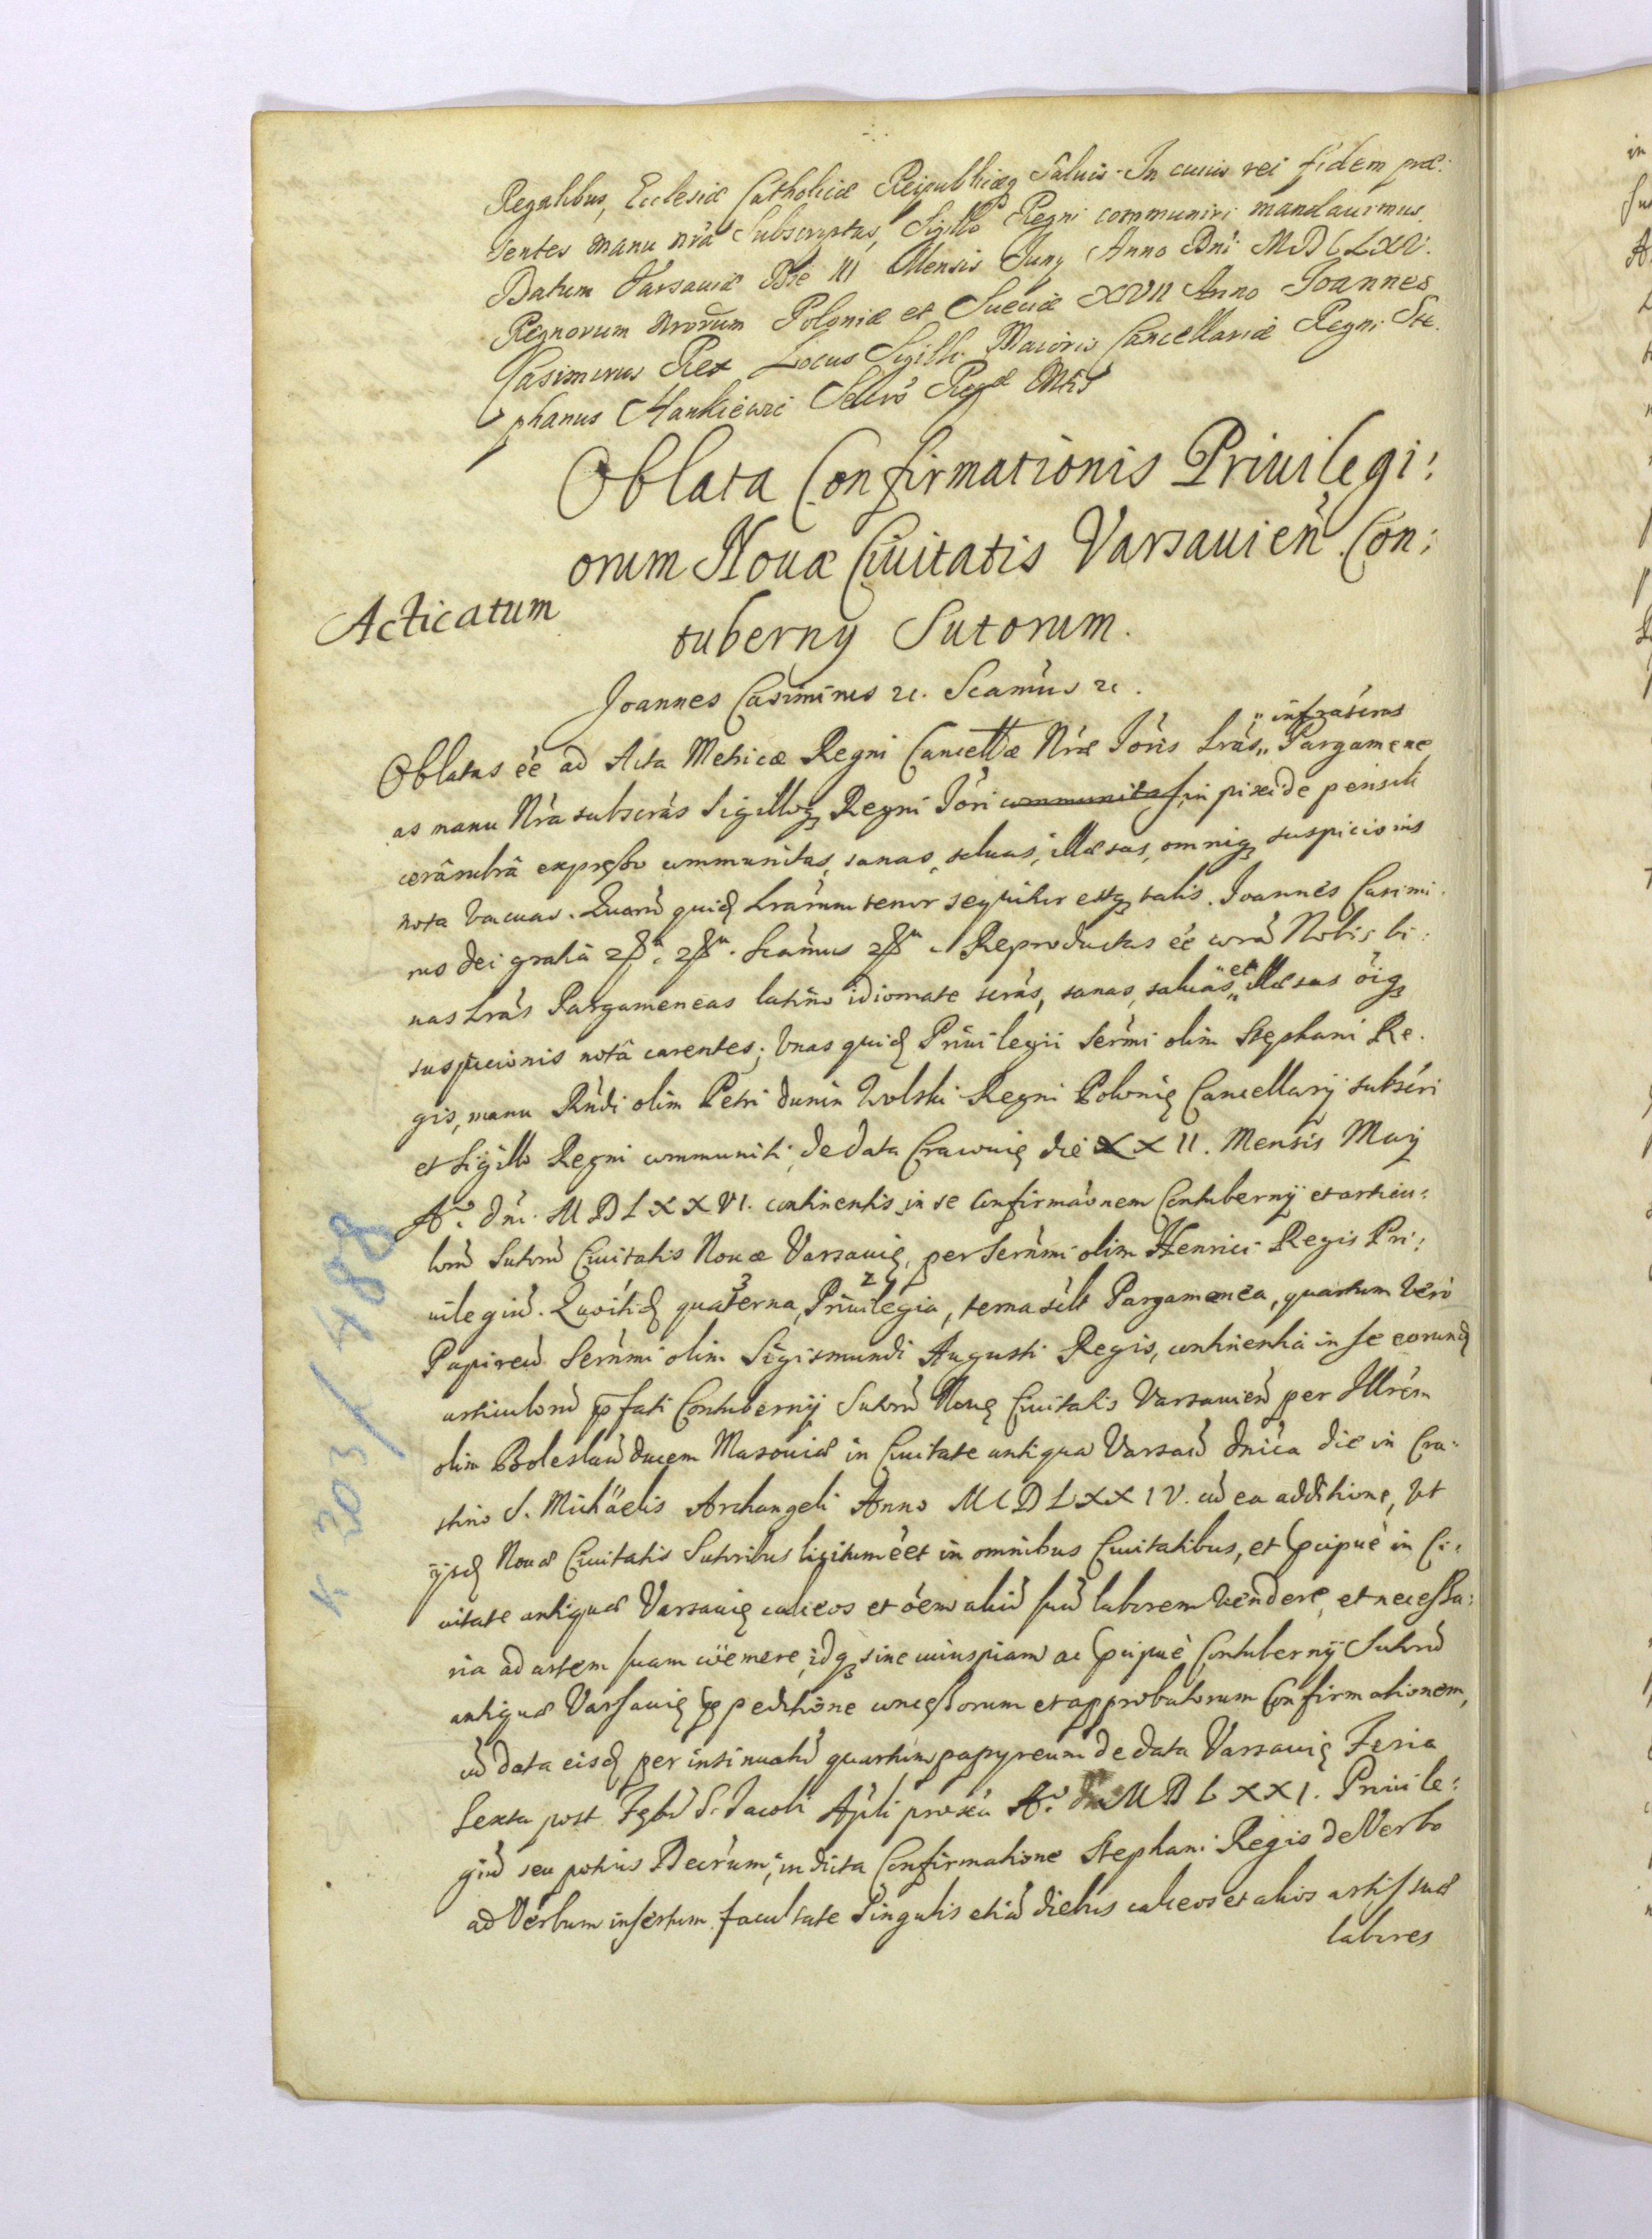 Regalibus, Ecclesiæ Catholicæ Reipublicæq Saluis. In cuius rei fidem præ:
sentes manu nrâ Subscriptas, Sigillo Regni communiri mandauimus.
Datum Varsauiæ Die III Mensis Juny Anno Dni MDCLXV.
Regnorum nrorum Poloniæ et Sueciæ XVII Anno Joannes
Casimirus Rex Locus Sigilli Maioris Cancellariæ Regni Ste.
phanus Hankiewic Secrs Regæ Mtis
Oblata Confirmationis Priuilegi:
orum Nouæ Ciuitatis Varsauien Con:
tuberny Sutorum.
Acticatum
Joannes Casimirus etc. Scamus etc.
Oblatas ée ad Acta Metricæ Regni Cancellæ Nræ Joris Lras „ infrascras „ Pargamene
as manu Nra subscras Sigilloq Regni Jori communitas, in pixide pensili
cerâ rubrâ expresso communitas, sanas, saluas, illæsas, omniq suspicionis
nota vacuas. Quarũ quid Lrarum tenor sequitur estq talis. Joannes Casimi.
rus dei gratiâ etc. etc. Scamus etc. Reproductas ée corã Nobis bi:
nas Lras Pargameneas latino idiomate scras, sanas, saluas „ et „ illæsas oiq
suspicionis notâ carentes; Vnas quid Priuilegii Sermi olim Stephani Re.
gis, manu Rndi olim Petri dunin Wolski Regni Polonię Cancellarij subscri
et Sigillo Regni communiti, de data Cracouię die XXII. Mensis Maij
Ao. dni. MDLXXVI. continentis in se Confirmaonem Contubernij et articu:
lorũ Sutorũ Ciuitatis Nouæ Varsauię, per Sernmi olim Henrici Regis Pri:
uilegiũ. Quoitid quaterna, 3 Priuilegia, 2 terna scilt Pargamenea, quartum vero
Papireũ Sernmi olim Sigismundi Augusti Regis, continentia in se eorund
articulorũ pfati Contubernij Sutorũ Nouę Ciuitatis Varsauien per Illrem
olim Boleslaũ ducem Masouiæ in Ciuitate antiqua Varsaũ dnica die in Cra:
stino S. Michäelis Archangeli Anno MCDLXXIV. cũ ea additione, vt
ijsd Nouæ Ciuitatis Sutoribus licitum éet in omnibus Ciuitatibus, et pcipuè in Ci:
uitate antiqua Varsauię calceos et óem aliũ suũ laborem vendere, et necessa:
ria ad artem suam cöemere, idq sine cuiuspiam ac pcipuè Contubernij Sutorũ
antiquæ Varsauię ppeditione concessorum et approbatorum Confirmationem,
cũ data eisd per insinuatũ quartum papyreum de data Varsauię Feria
Sexta post Festũ S. Jacobi Apli proxa Ao. dni MDLXXI. Priuile:
giũ seu potius Decrum, in dicta Confirmatione Stephani Regis de Verbo
ad Verbum insertum facultate Singulis etiã diebus calceos et alios artis suæ
labores
K 303 / 488